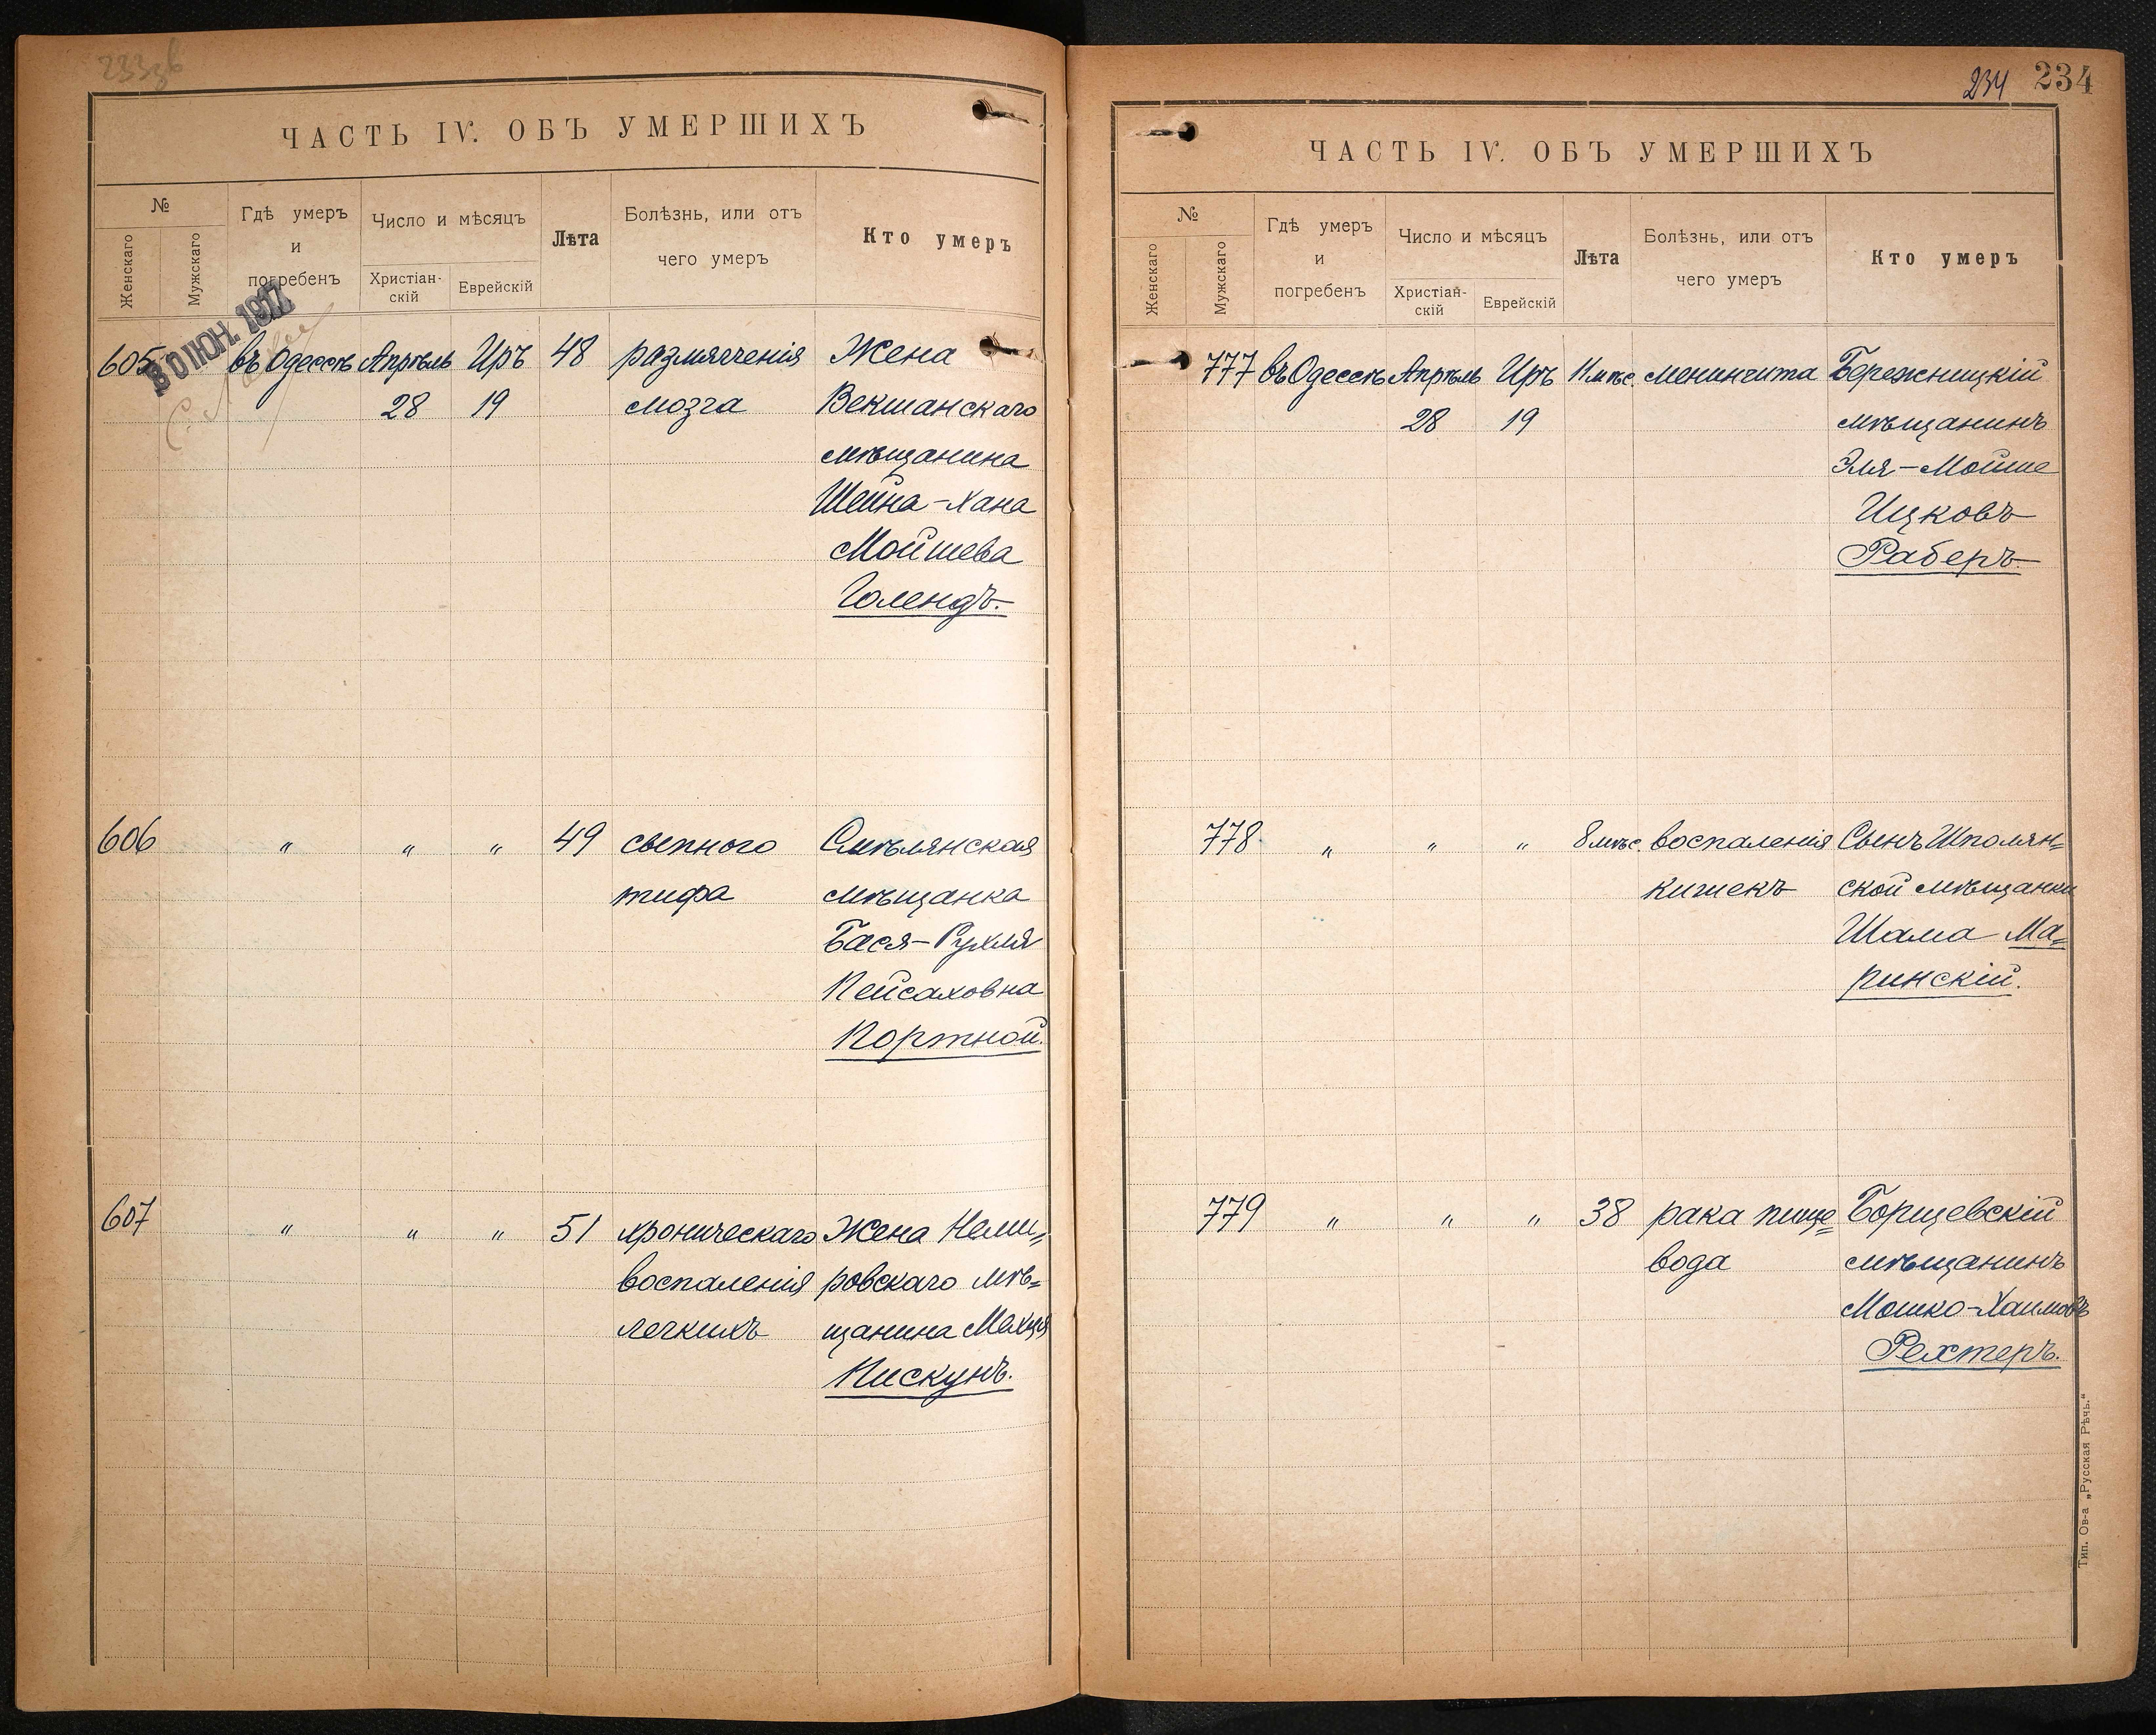 ЧАСТЬ IV. ОБЪ УМЕРШИХЪ
№
Женскаго
Мужскаго
Гдѣ умеръ
и
погребенъ
Число и мѣсяцъ
Христіан-
скій
Еврейскій
Лѣта
Болѣзнь, или отъ
чего умеръ
Кто умеръ
30 ІЮН. 1917
605 въ Одессѣ Апрѣль Иръ 48 размягченія Жена
28 19 мозга Векшанскаго
мѣщанина
Шейна-Хана
Мойшева
Голендъ.
606 " " " 49 сыпного Смѣлянская
тифа мѣщанка
Бася-Рухля
Пейсаховна
Портной.
607 " " " 51 хроническаго Жена Неми=
воспаленія ровскаго мѣ=
легкихъ щанина Махця
Пискунъ.
234 234
ЧАСТЬ IV. ОБЪ УМЕРШИХЪ
№
Женскаго
Мужскаго
Гдѣ умеръ
и
погребенъ
Число и мѣсяцъ
Христіан-
скій
Еврейскій
Лѣта
Болѣзнь, или отъ
чего умеръ
Кто умеръ
777 въ Одессѣ Апрѣль Иръ 11 мѣс. менингита Бережницкій
28 19 мѣщанинъ
Эля-Мойше
Ицковъ
Раберъ.
778 " " " 8 мѣс. воспаленія Сынъ Шполян=
кишекъ ской мѣщанки
Шама Ма=
ринскій.
779 " " " 38 рака пище= Борщевскій
вода мѣщанинъ
Мошко-Хаимовъ
Рехтеръ.
Тип. Ов-а „Русская Рѣчь.“